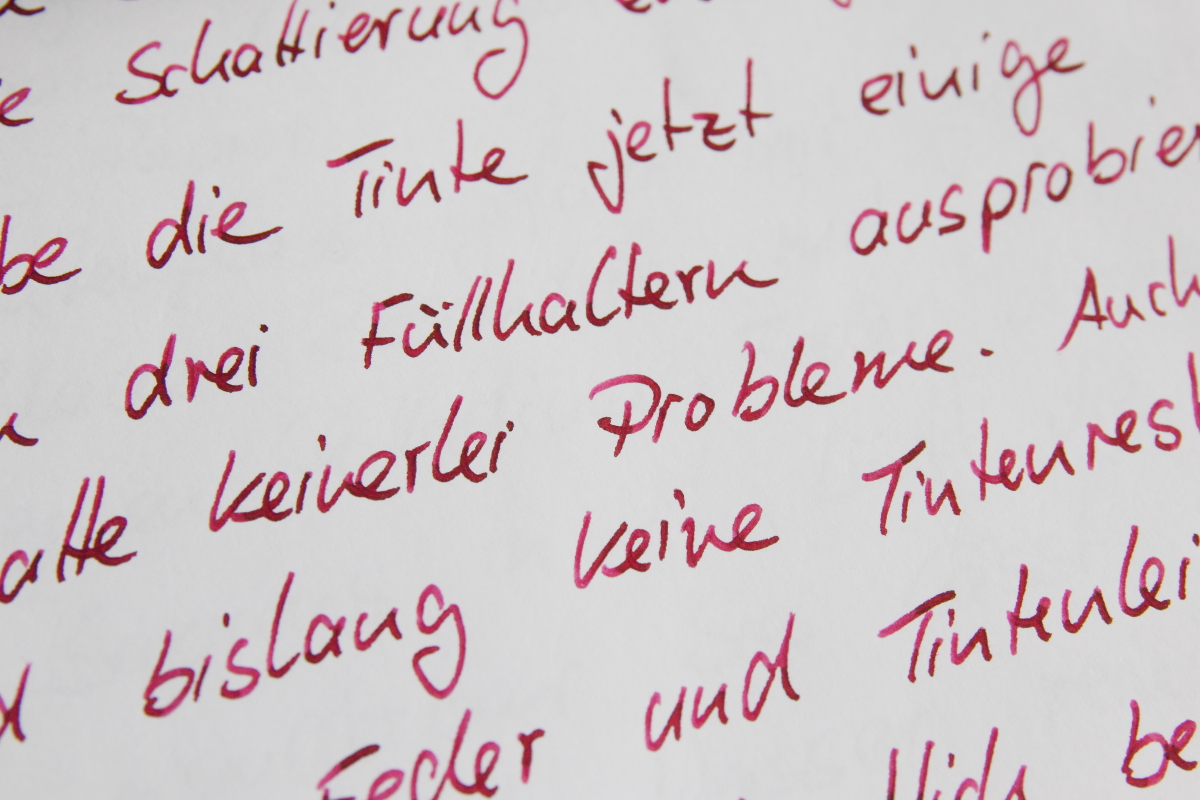 Schattierung
be die Tinte jetzt einige
drei Füllhaltern ausprobier
atte keinerlei Probleme. Auch
bislang keine Tintenrest
Feder und Tintenlei
be